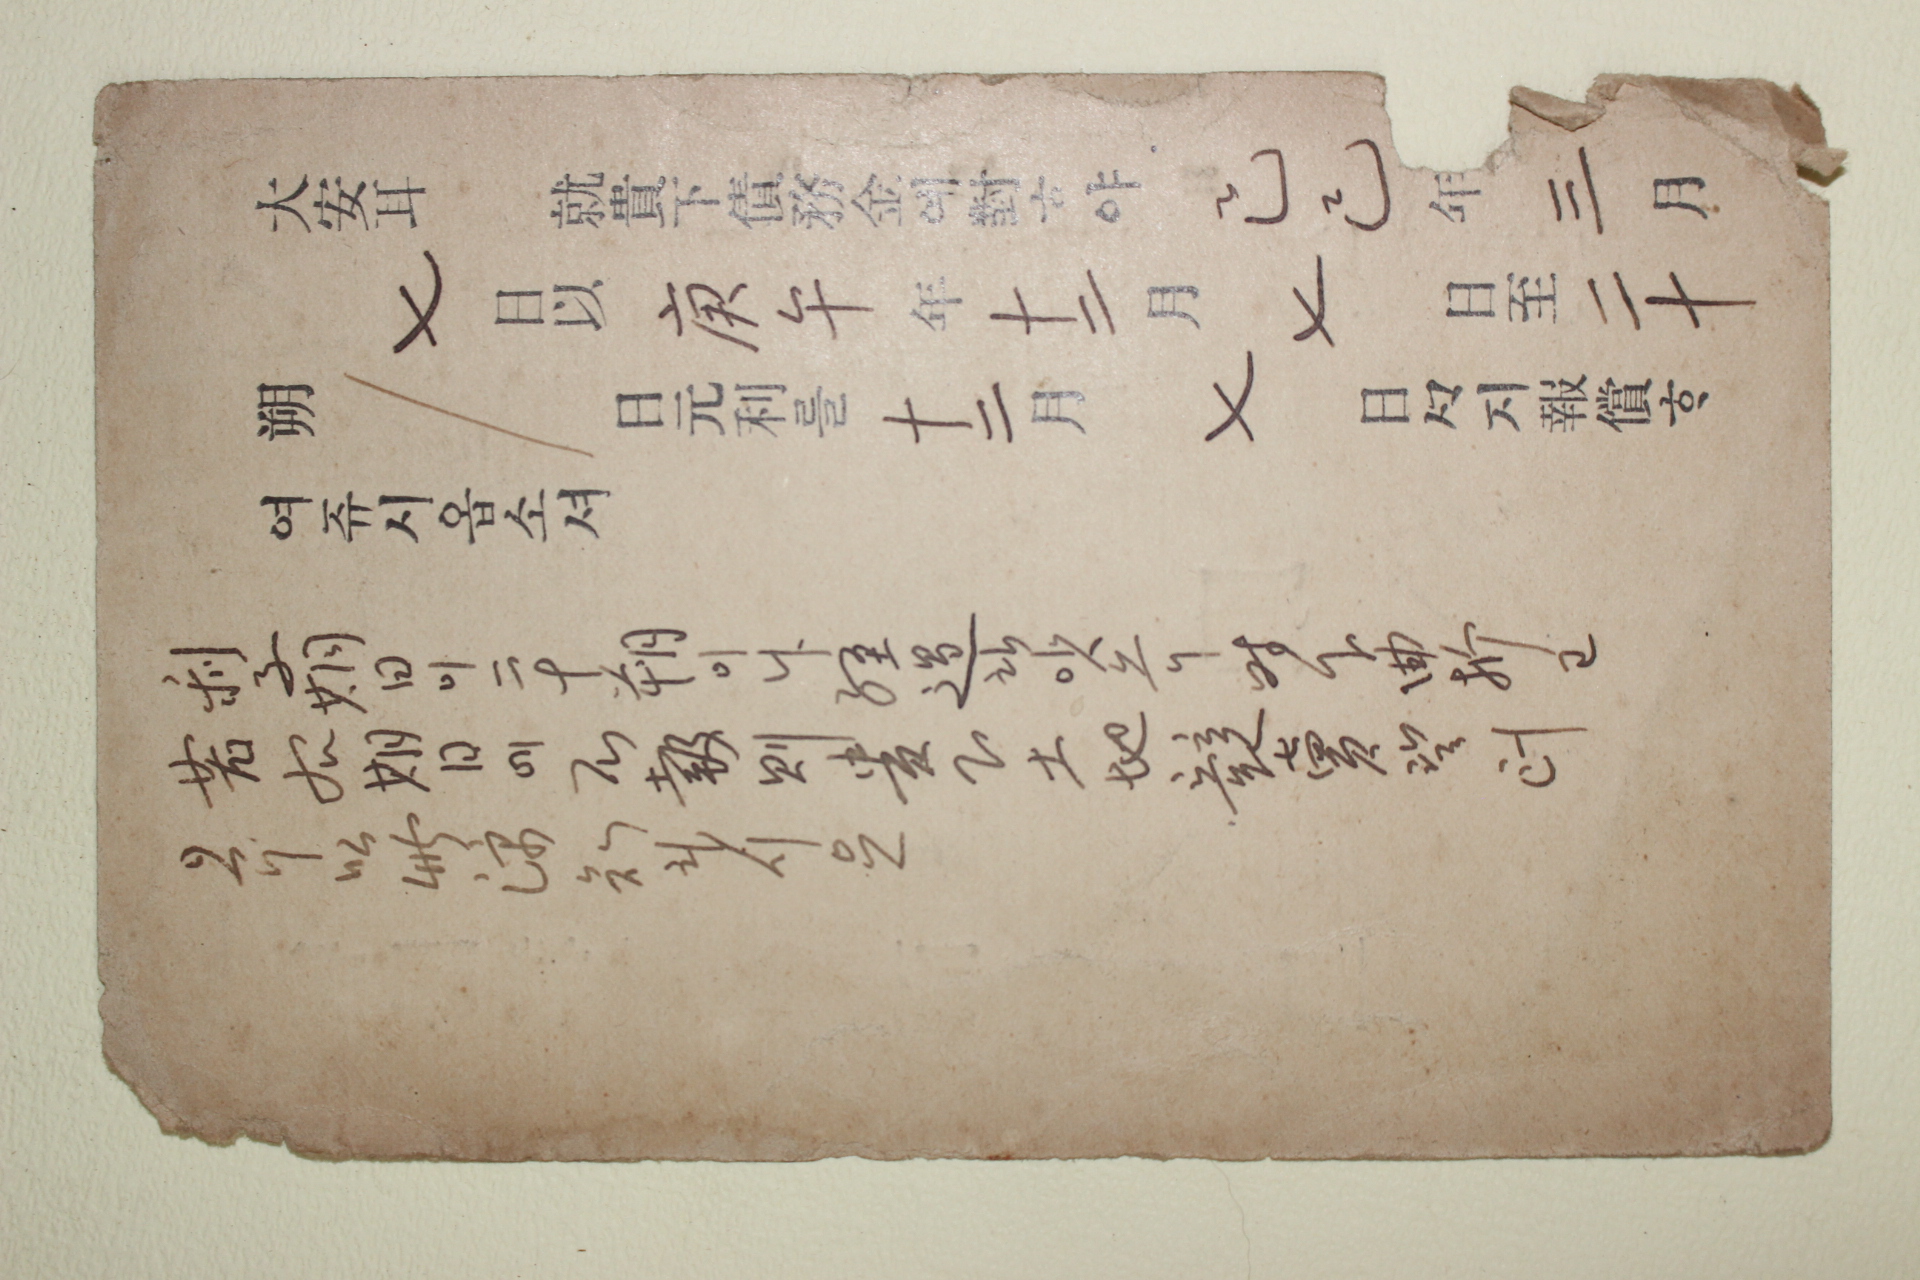 大安耳 就貴下債務金에對ᄒᆞ야 己巳年三月
七日以庚午年十二月七日至二十
朔 日元利를十二月七日ᄭᆞ지報償ᄒᆞ
여쥬시옵소셔
利子期日이二十朔이나經過하얏스니 曲折
若右期日에不報則貴下土地競賣할터
오니以此諒知하시